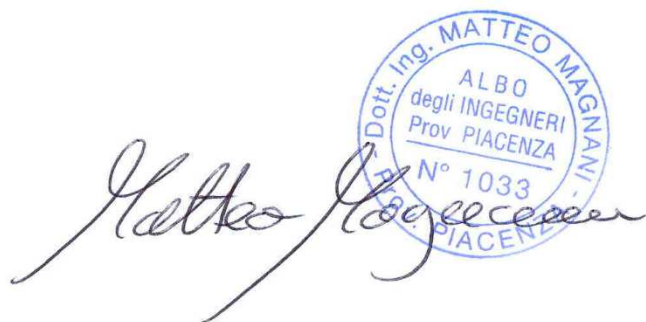 Dott. Ing. MATTEO MAGNANI - Prov. PIACENZA
ALBO
degli INGEGNERI
Prov PIACENZA
N° 1033
Matteo Magnani